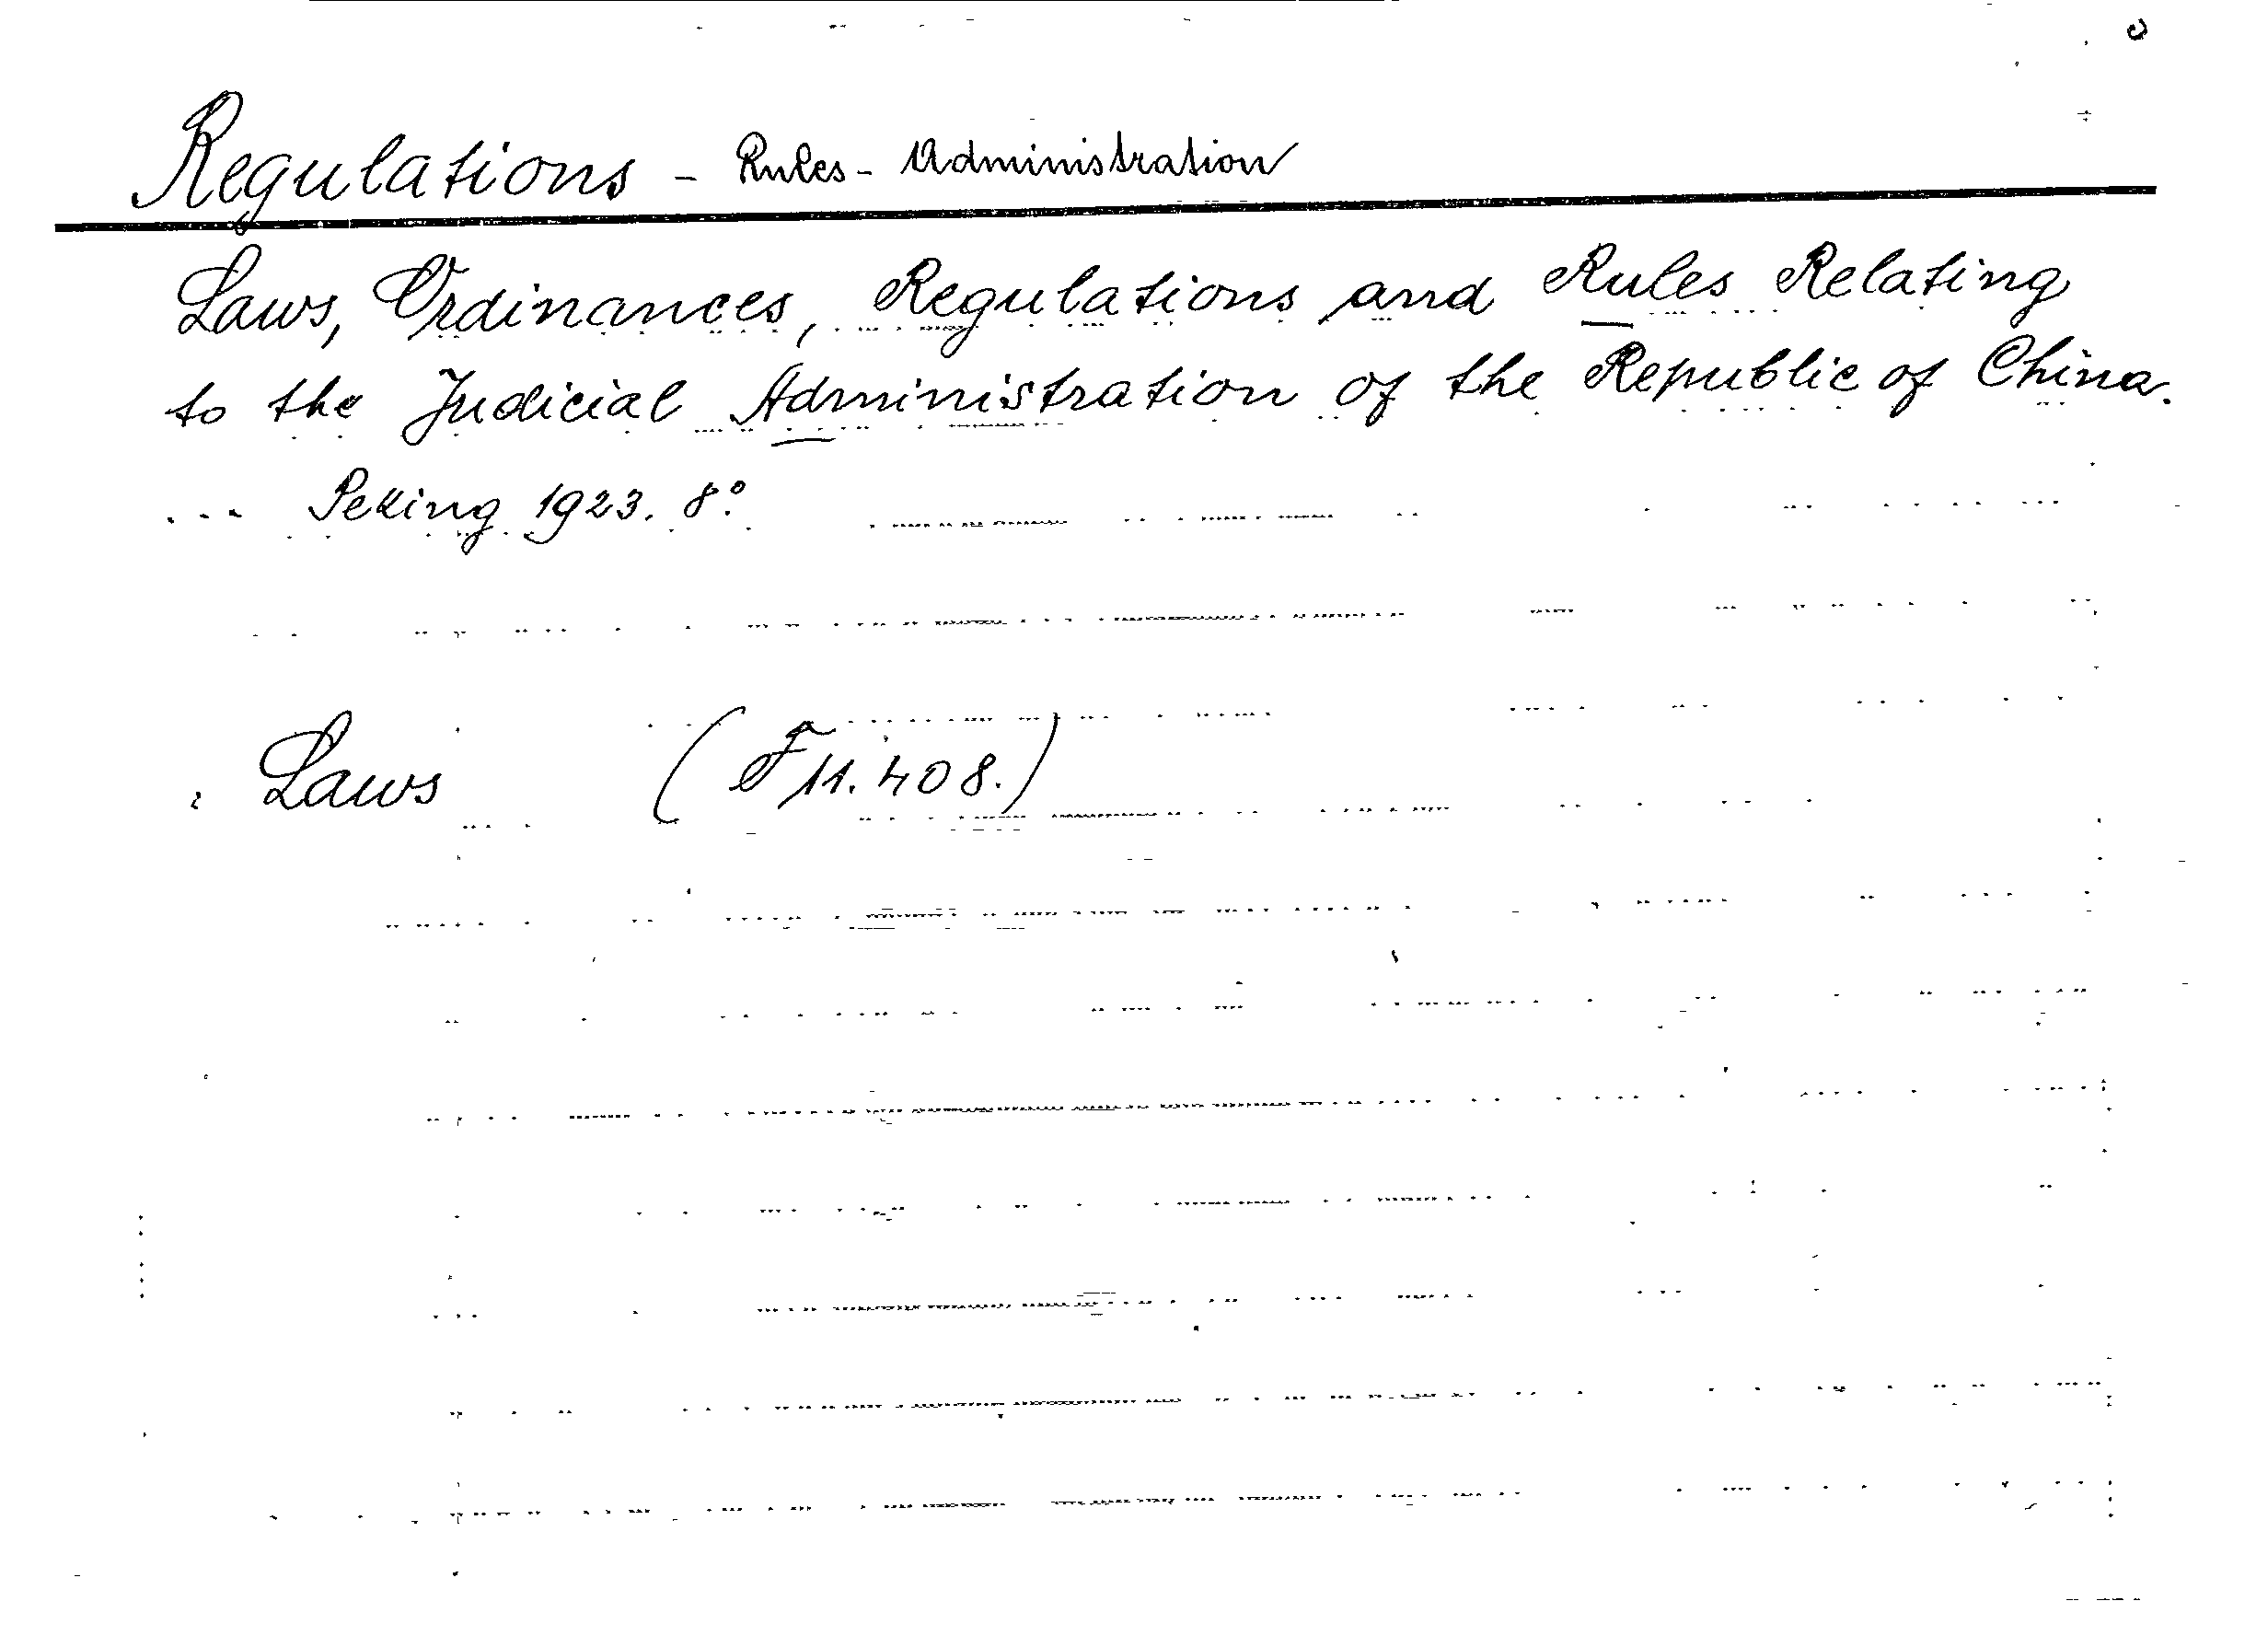 Regulations - Rules - Administration
Laws, Ordinances, Regulations and Rules Relating
to the Judicial Administration of the Republic of China.
... Peking 1923. 8°.
Laws (F 11.408.)